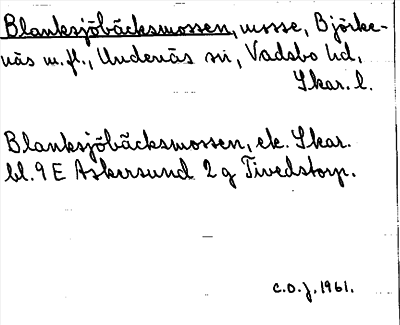 Blanksjöbäcksmossen, mosse, Björke-
näs m.fl., Undenäs sn, Vadsbo hd,
Skar. l.
Blanksjöbäcksmossen, ek. Skar.
bl. 9 E Askersund 2 g Tivedstorp.
C.O.J. 1961.